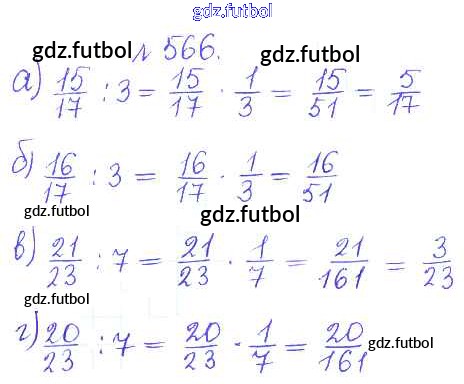 gdz.futbol
gdz.futbol № 566. gdz.futbol
а) 15/17 : 3 = 15/17 · 1/3 = 15/51 = 5/17
gdz.futbol
б) 16/17 : 3 = 16/17 · 1/3 = 16/51
gdz.futbol gdz.futbol
в) 21/23 : 7 = 21/23 · 1/7 = 21/161 = 3/23
gdz.futbol gdz.futbol
г) 20/23 : 7 = 20/23 · 1/7 = 20/161 gdz.futbol